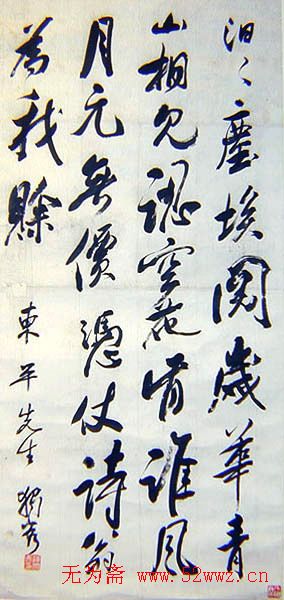 汩々塵埃閱歲華青
山相見認空花誰風
月元無價憑仗詩翁
為我賒
東平先生 獨秀
无为斋 www.52wwz.cn